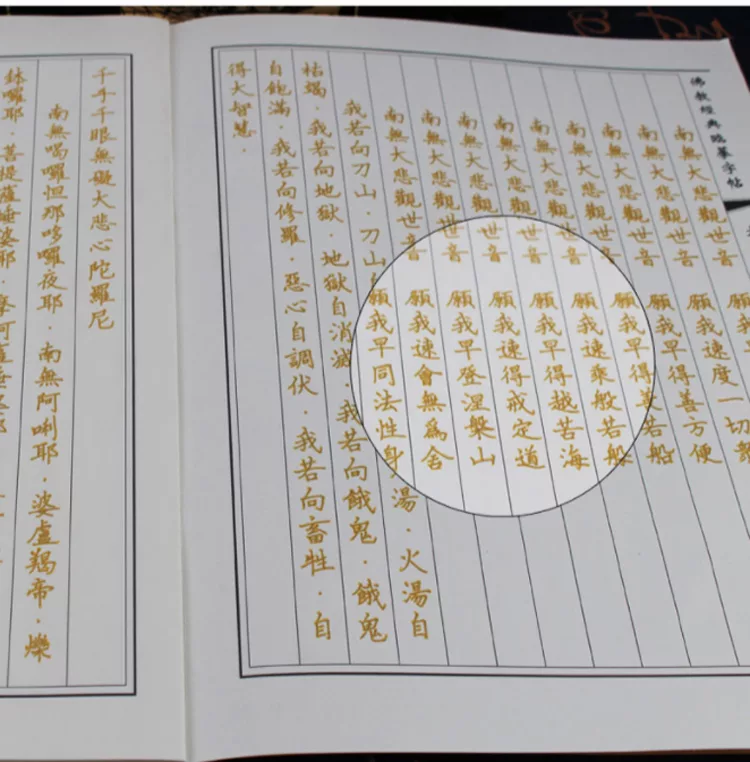 佛教經典臨摹字帖
南無大悲觀世音 願我早
南無大悲觀世音 願我速度一切眾
南無大悲觀世音 願我早得善方便
南無大悲觀世音 願我速乘般若船
南無大悲觀世音 願我早得越苦海
南無大悲觀世音 願我速得戒定道
南無大悲觀世音 願我早登涅槃山
南無大悲觀世音 願我速會無爲舍
南無大悲觀世音 願我早同法性身
我若向刀山·刀山 湯·火湯自
枯竭·我若向地獄·地獄自消滅·我若向餓鬼·餓鬼
自飽滿·我若向修羅·惡心自調伏·我若向畜牲·自
得大智慧·
千手千眼無礙大悲心陀羅尼
南無喝囉怛那哆囉夜耶·南無阿唎耶·婆盧羯帝·爍
鉢囉耶·菩提薩埵婆耶·摩訶薩埵婆耶